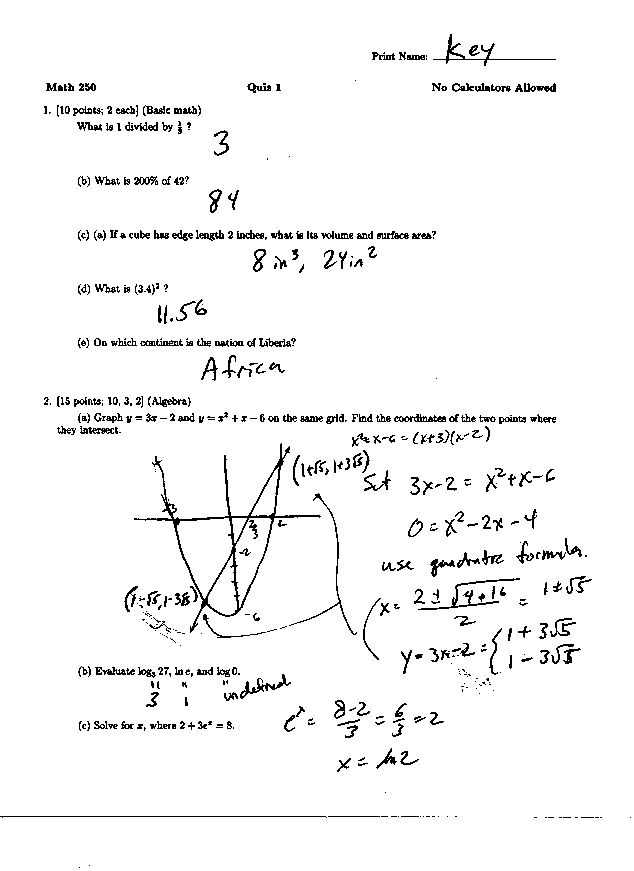 Print Name: Key
Math 250 Quiz 1 No Calculators Allowed
1. [10 points; 2 each] (Basic math)
What is 1 divided by 1/3 ?
3
(b) What is 200% of 42?
84
(c) (a) If a cube has edge length 2 inches, what is its volume and surface area?
8 in³, 24 in²
(d) What is (3.4)² ?
11.56
(e) On which continent is the nation of Liberia?
Africa
2. [15 points; 10, 3, 2] (Algebra)
(a) Graph y = 3x − 2 and y = x² + x − 6 on the same grid. Find the coordinates of the two points where
they intersect.
x²+x-6 = (x+3)(x-2)
(1+√5, 1+3√5)
Set 3x-2 = x²+x-6
-3
2/3
2
-2
-6
0 = x²-2x-4
use quadratic formula.
(1-√5, 1-3√5)
x = 2 ± √4+16 / 2 = 1±√5
y = 3x-2 = { 1+3√5
1-3√5
(b) Evaluate log₃ 27, ln e, and log 0.
" " "
3 1 undefined
(c) Solve for x, where 2 + 3eˣ = 8.
eˣ = 8-2/3 = 6/3 = 2
x = ln 2